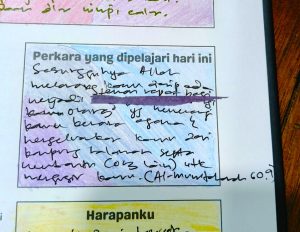 dan dir
Perkara yang dipelajari hari ini
Sesungguhnya Allah
melarang kamu daripada
menjadi teman rapat bagi
kamu orang yg memerangi
kamu kerana agama &
mengeluarkan kamu dari
kampung halaman serta
membantu (org lain) utk
mengusir kamu. (Al-Mumtahanah 60:9)
Harapanku